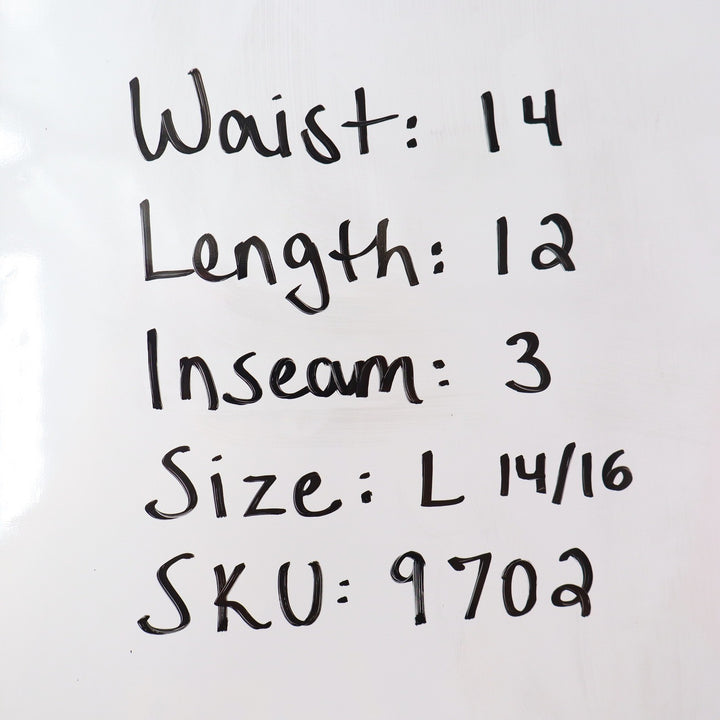 Waist: 14
Length: 12
Inseam: 3
Size: L 14/16
SKU: 9702